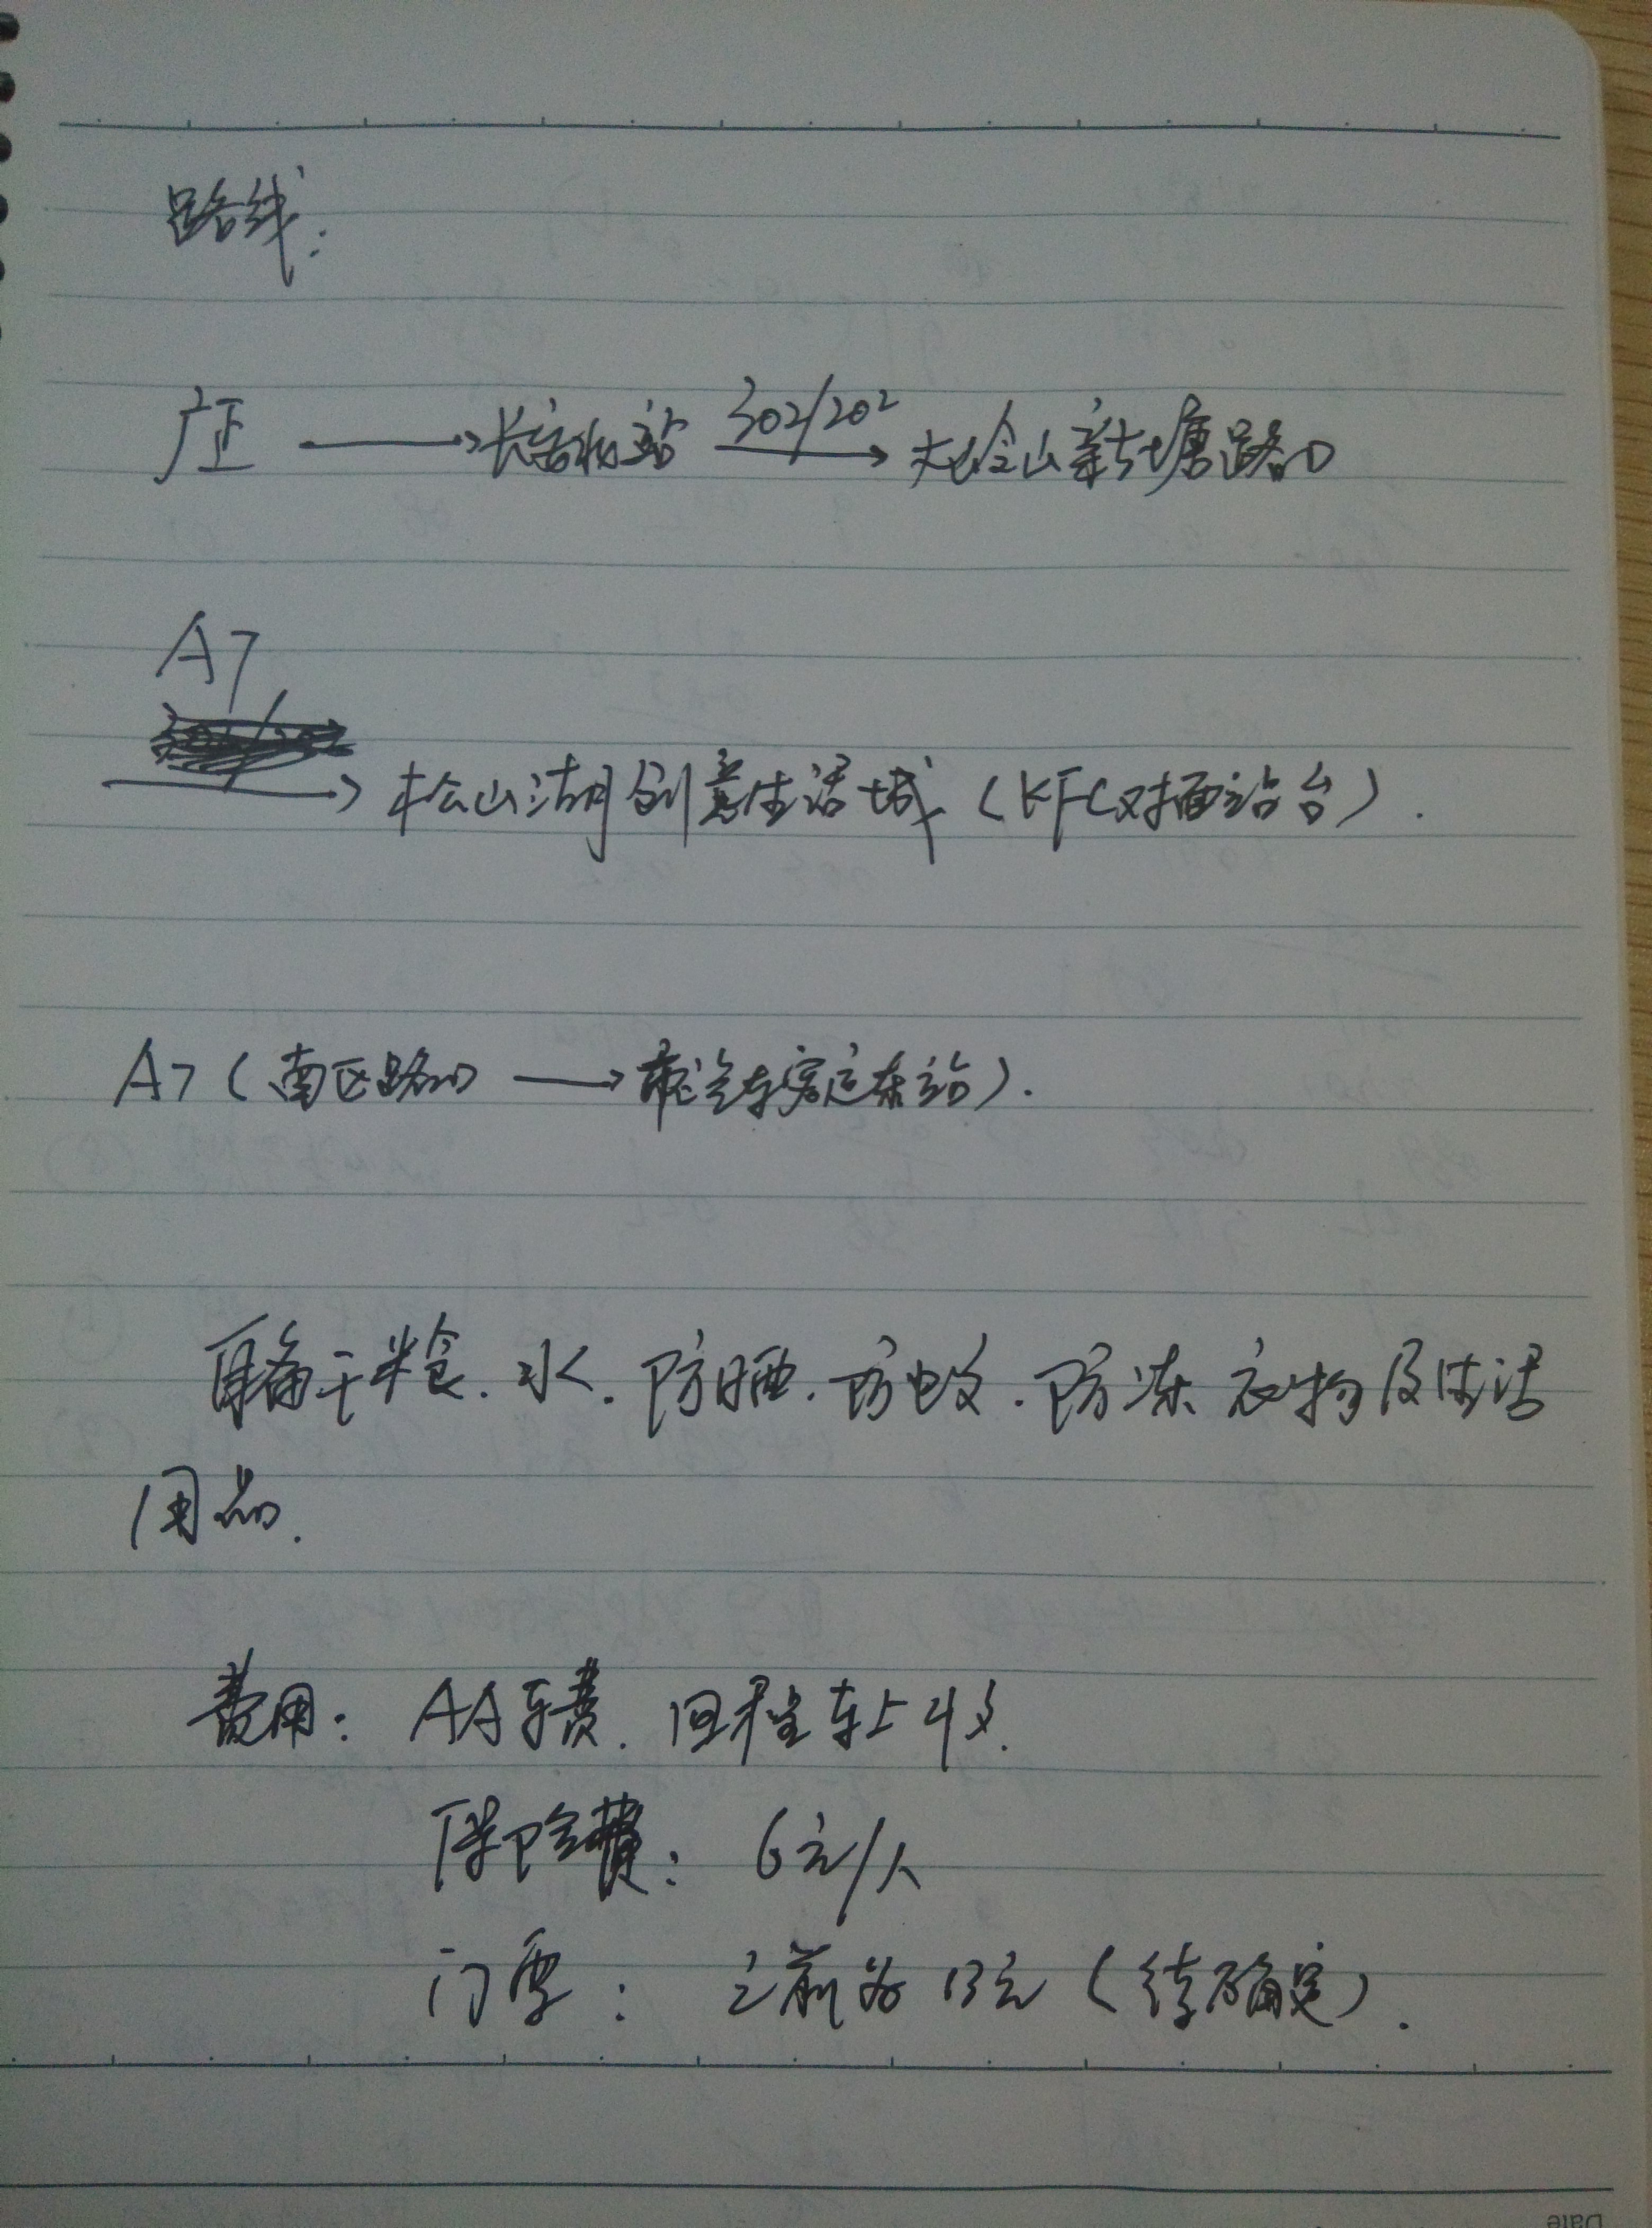 路线:
广正 → 长安北站 302/202 → 大岭山新塘路口
A7
→ 松山湖创意生活城（KFC对面站台）.
A7（南区路口 → 市汽车客运东站）.
自备干粮.水.防晒.防蚊.防冻衣物及生活
用品.
费用: AA车费.回程车上收.
保险费: 6元/人
门票: 之前为13元（待确定）.
Date